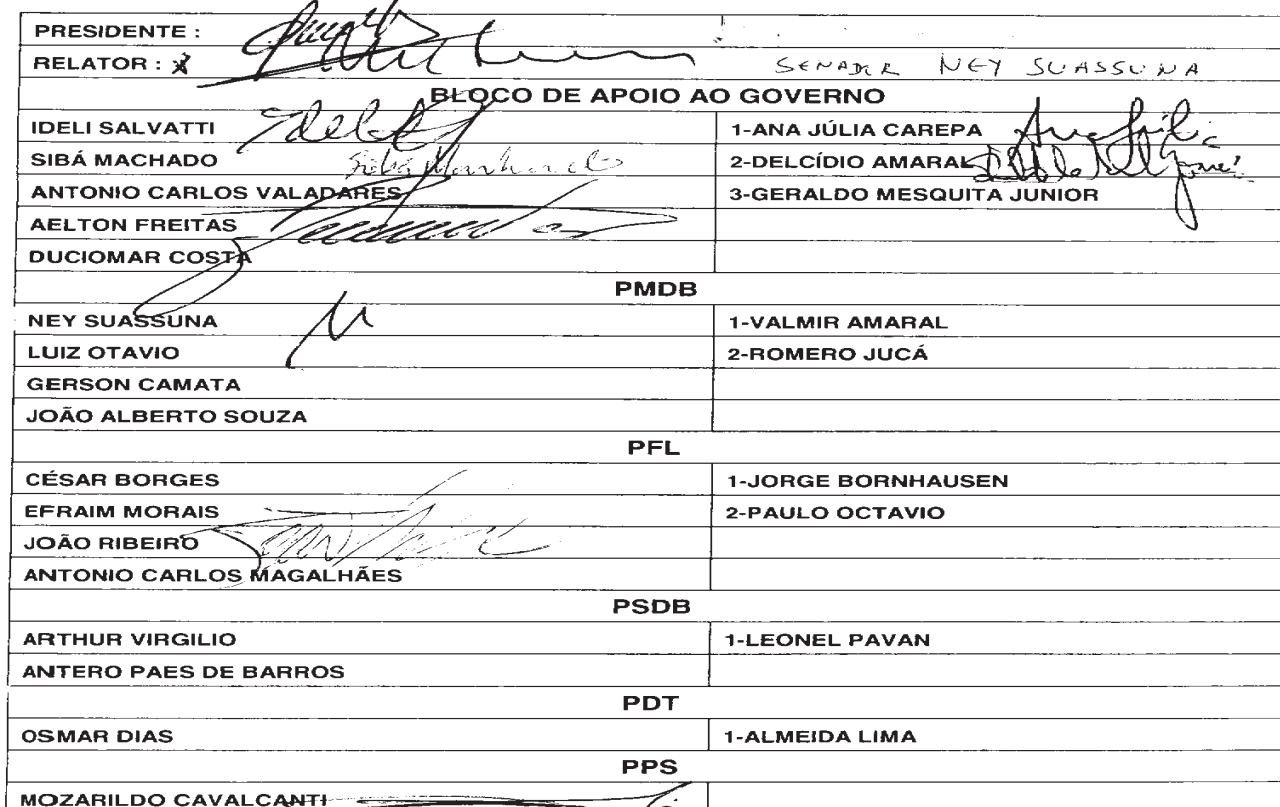 PRESIDENTE :
RELATOR : SENADOR NEY SUASSUNA
BLOCO DE APOIO AO GOVERNO
IDELI SALVATTI 1-ANA JÚLIA CAREPA
SIBÁ MACHADO Sibá Machado 2-DELCÍDIO AMARAL
ANTONIO CARLOS VALADARES 3-GERALDO MESQUITA JUNIOR
AELTON FREITAS
DUCIOMAR COSTA
PMDB
NEY SUASSUNA 1-VALMIR AMARAL
LUIZ OTAVIO 2-ROMERO JUCÁ
GERSON CAMATA
JOÃO ALBERTO SOUZA
PFL
CÉSAR BORGES 1-JORGE BORNHAUSEN
EFRAIM MORAIS 2-PAULO OCTAVIO
JOÃO RIBEIRO
ANTONIO CARLOS MAGALHÃES
PSDB
ARTHUR VIRGILIO 1-LEONEL PAVAN
ANTERO PAES DE BARROS
PDT
OSMAR DIAS 1-ALMEIDA LIMA
PPS
MOZARILDO CAVALCANTI